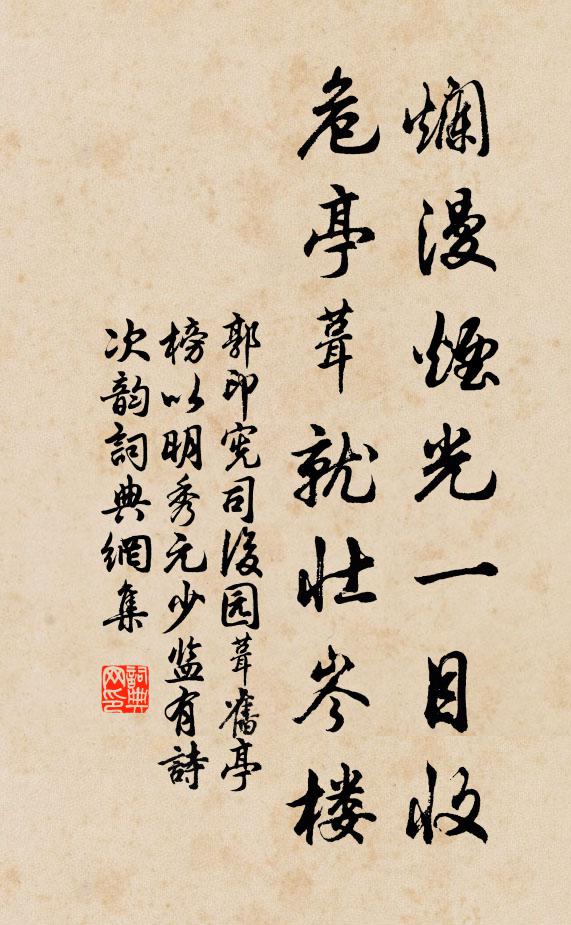 爛漫煙光一目收
危亭葺就壮岑楼
郭印宪司後园葺舊亭
榜以明秀元少监有詩
次韵詞典網集
詞典网印